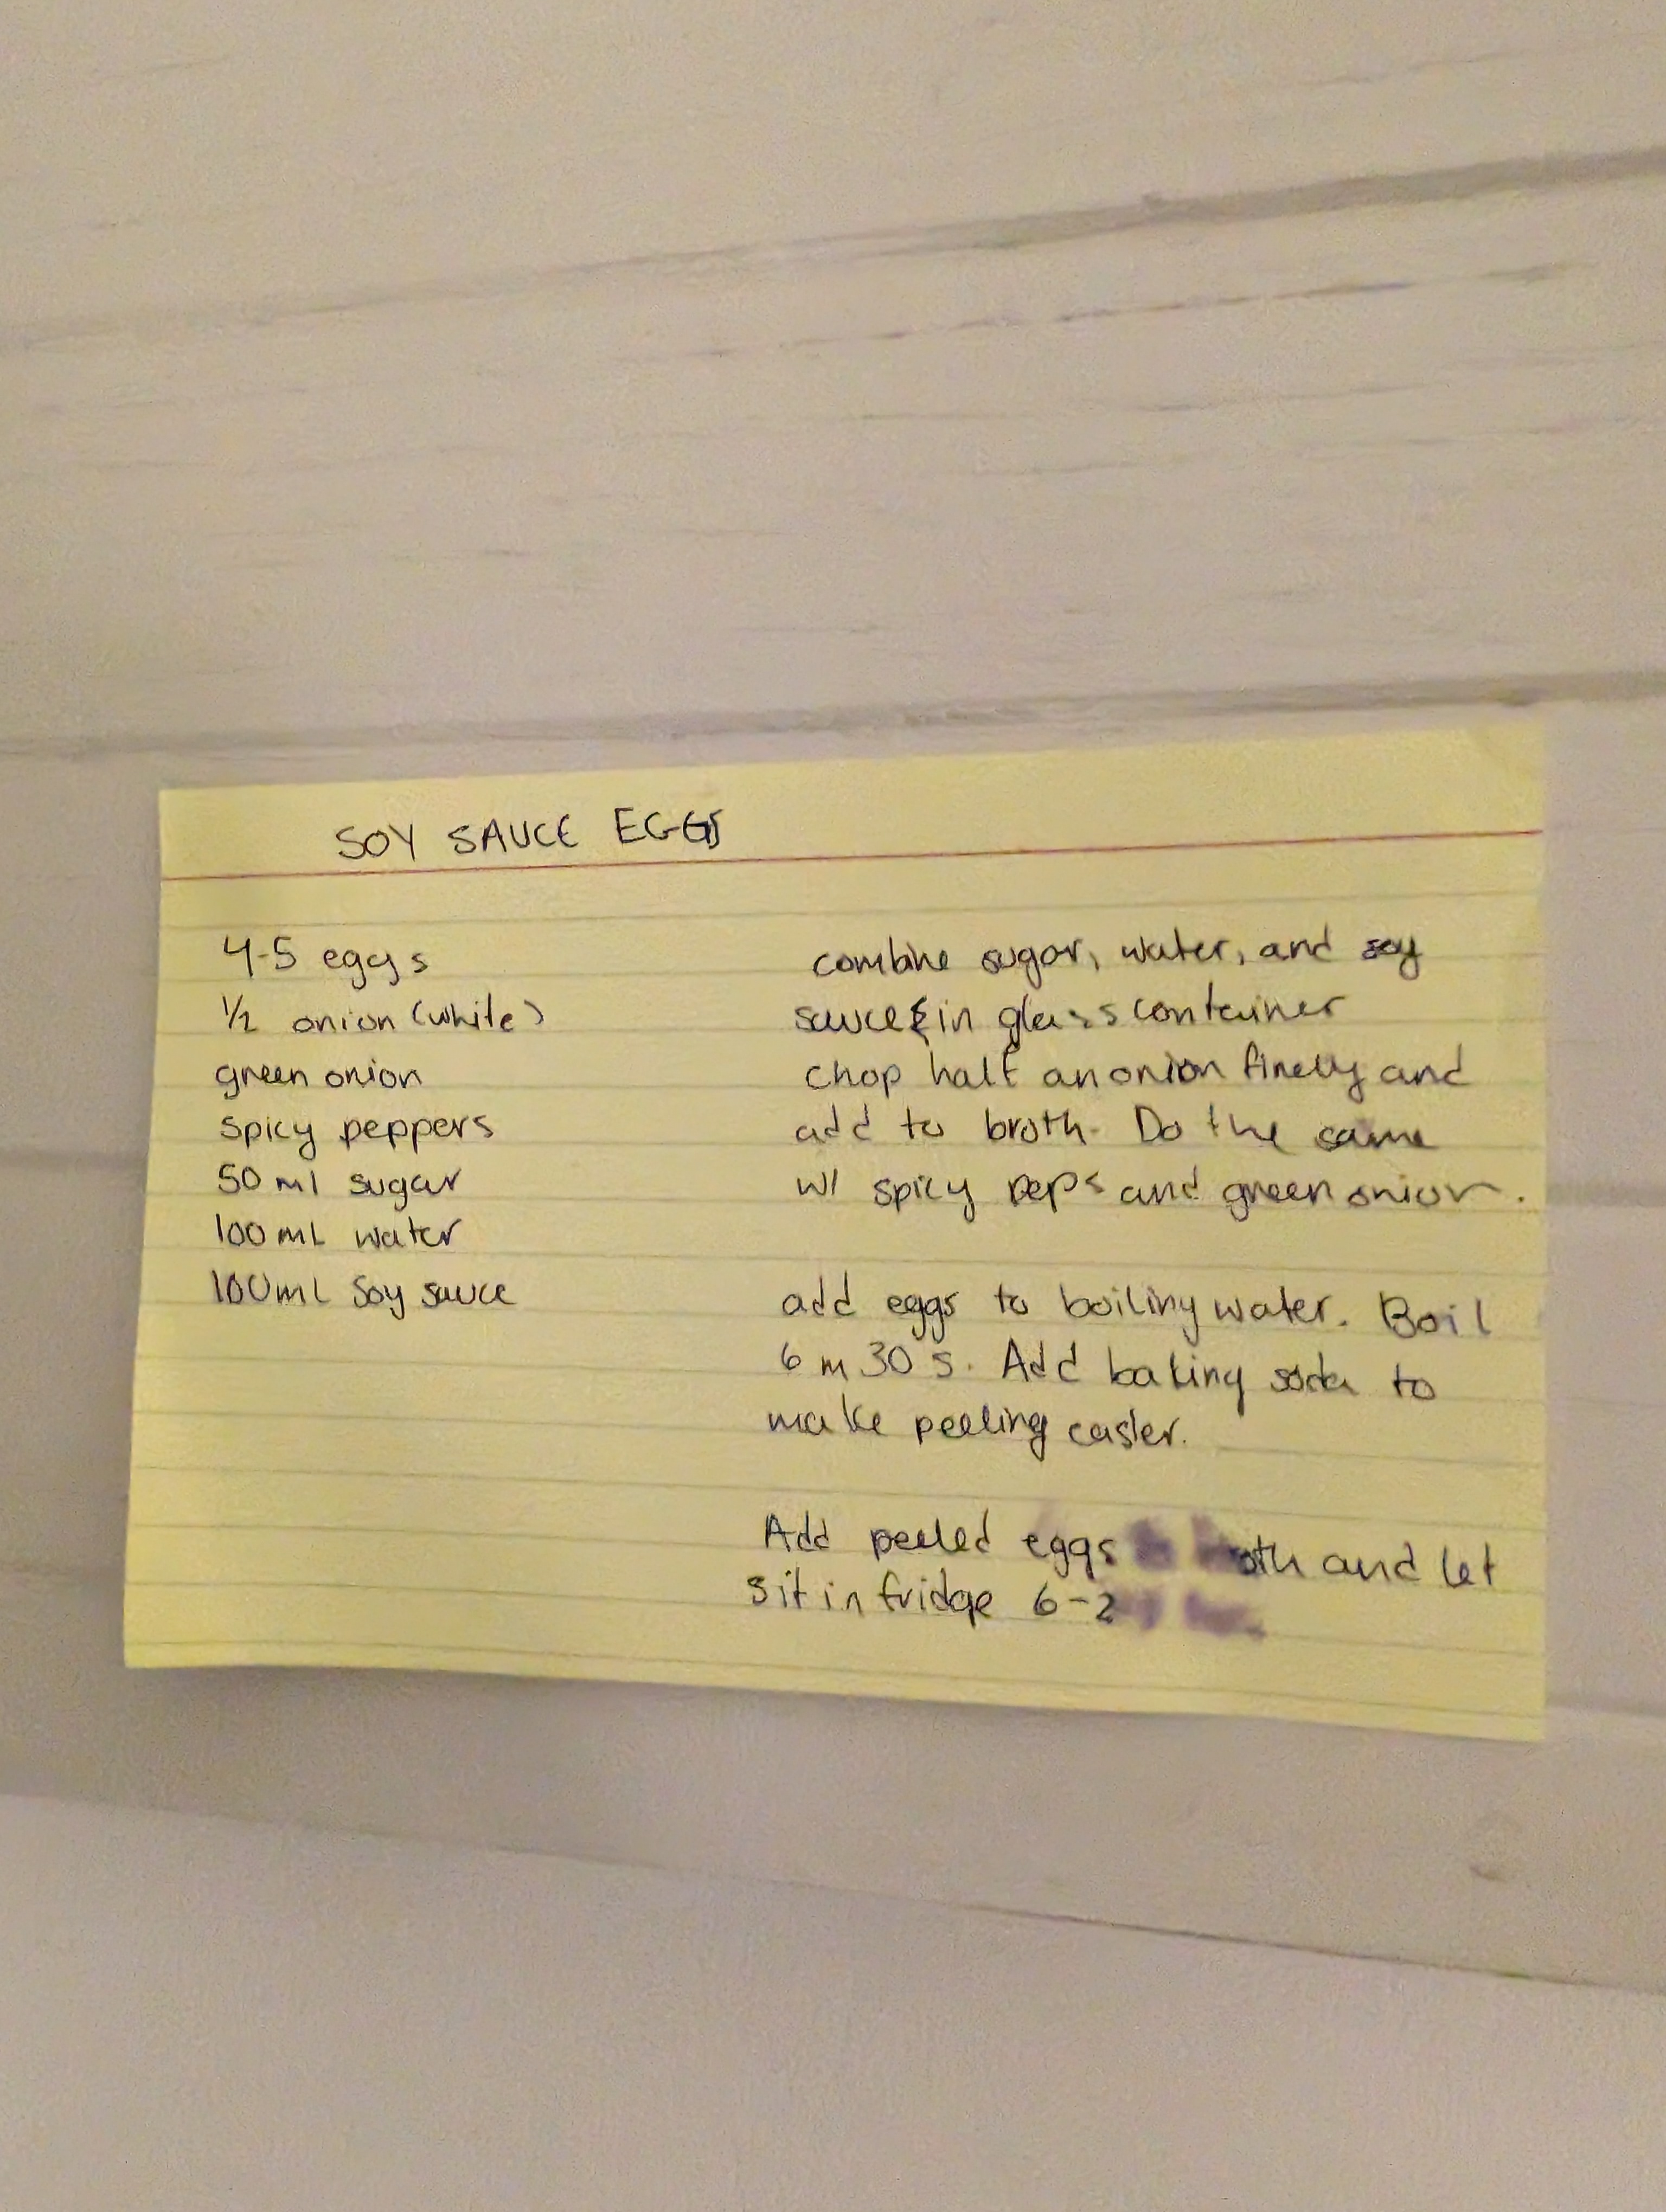 SOY SAUCE EGGS
4-5 eggs
1/2 onion (white)
green onion
spicy peppers
50 ml sugar
100 mL water
100mL Soy sauce
combine sugar, water, and soy
sauce in glass container
chop half an onion finely and
add to broth. Do the same
w/ spicy peps and green onion.
add eggs to boiling water. Boil
6 m 30 s. Add baking soda to
make peeling easier.
Add peeled eggs and let
sit in fridge